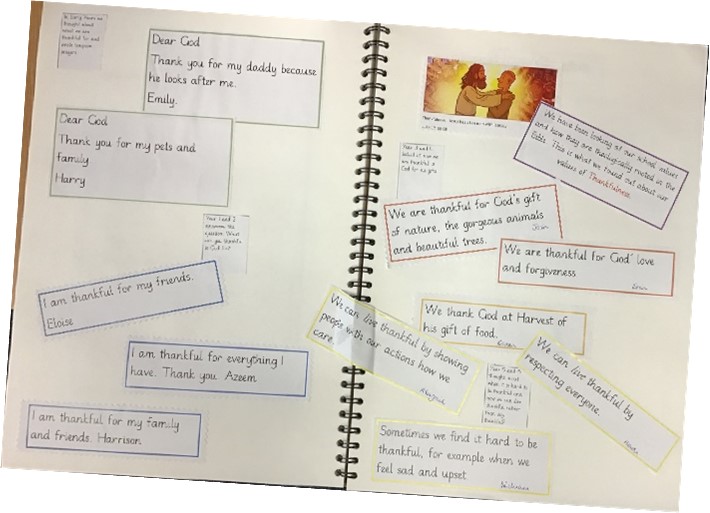 In Early Years we
thought about
what we are
thankful for and
Dear God
Thank you for my daddy because
he looks after me.
Emily.
Dear God
Thank you for my pets and
family
Harry
I am thankful for my friends.
Eloise
I am thankful for everything I
have. Thank you Azeem
I am thankful for my family
and friends. Harrison
We have been looking at our school values
and how they are theologically rooted in the
Bible. This is what we found out about our
values of Thankfulness.
We are thankful for God's gift
of nature, the gorgeous animals
and beautiful trees.
We are thankful for God' love
and forgiveness
We thank God at Harvest of
his gift of food.
We can live thankful by showing
people with our actions how we
care.
We can live thankful by
respecting everyone.
Sometimes we find it hard to be
thankful, for example when we
feel sad and upset